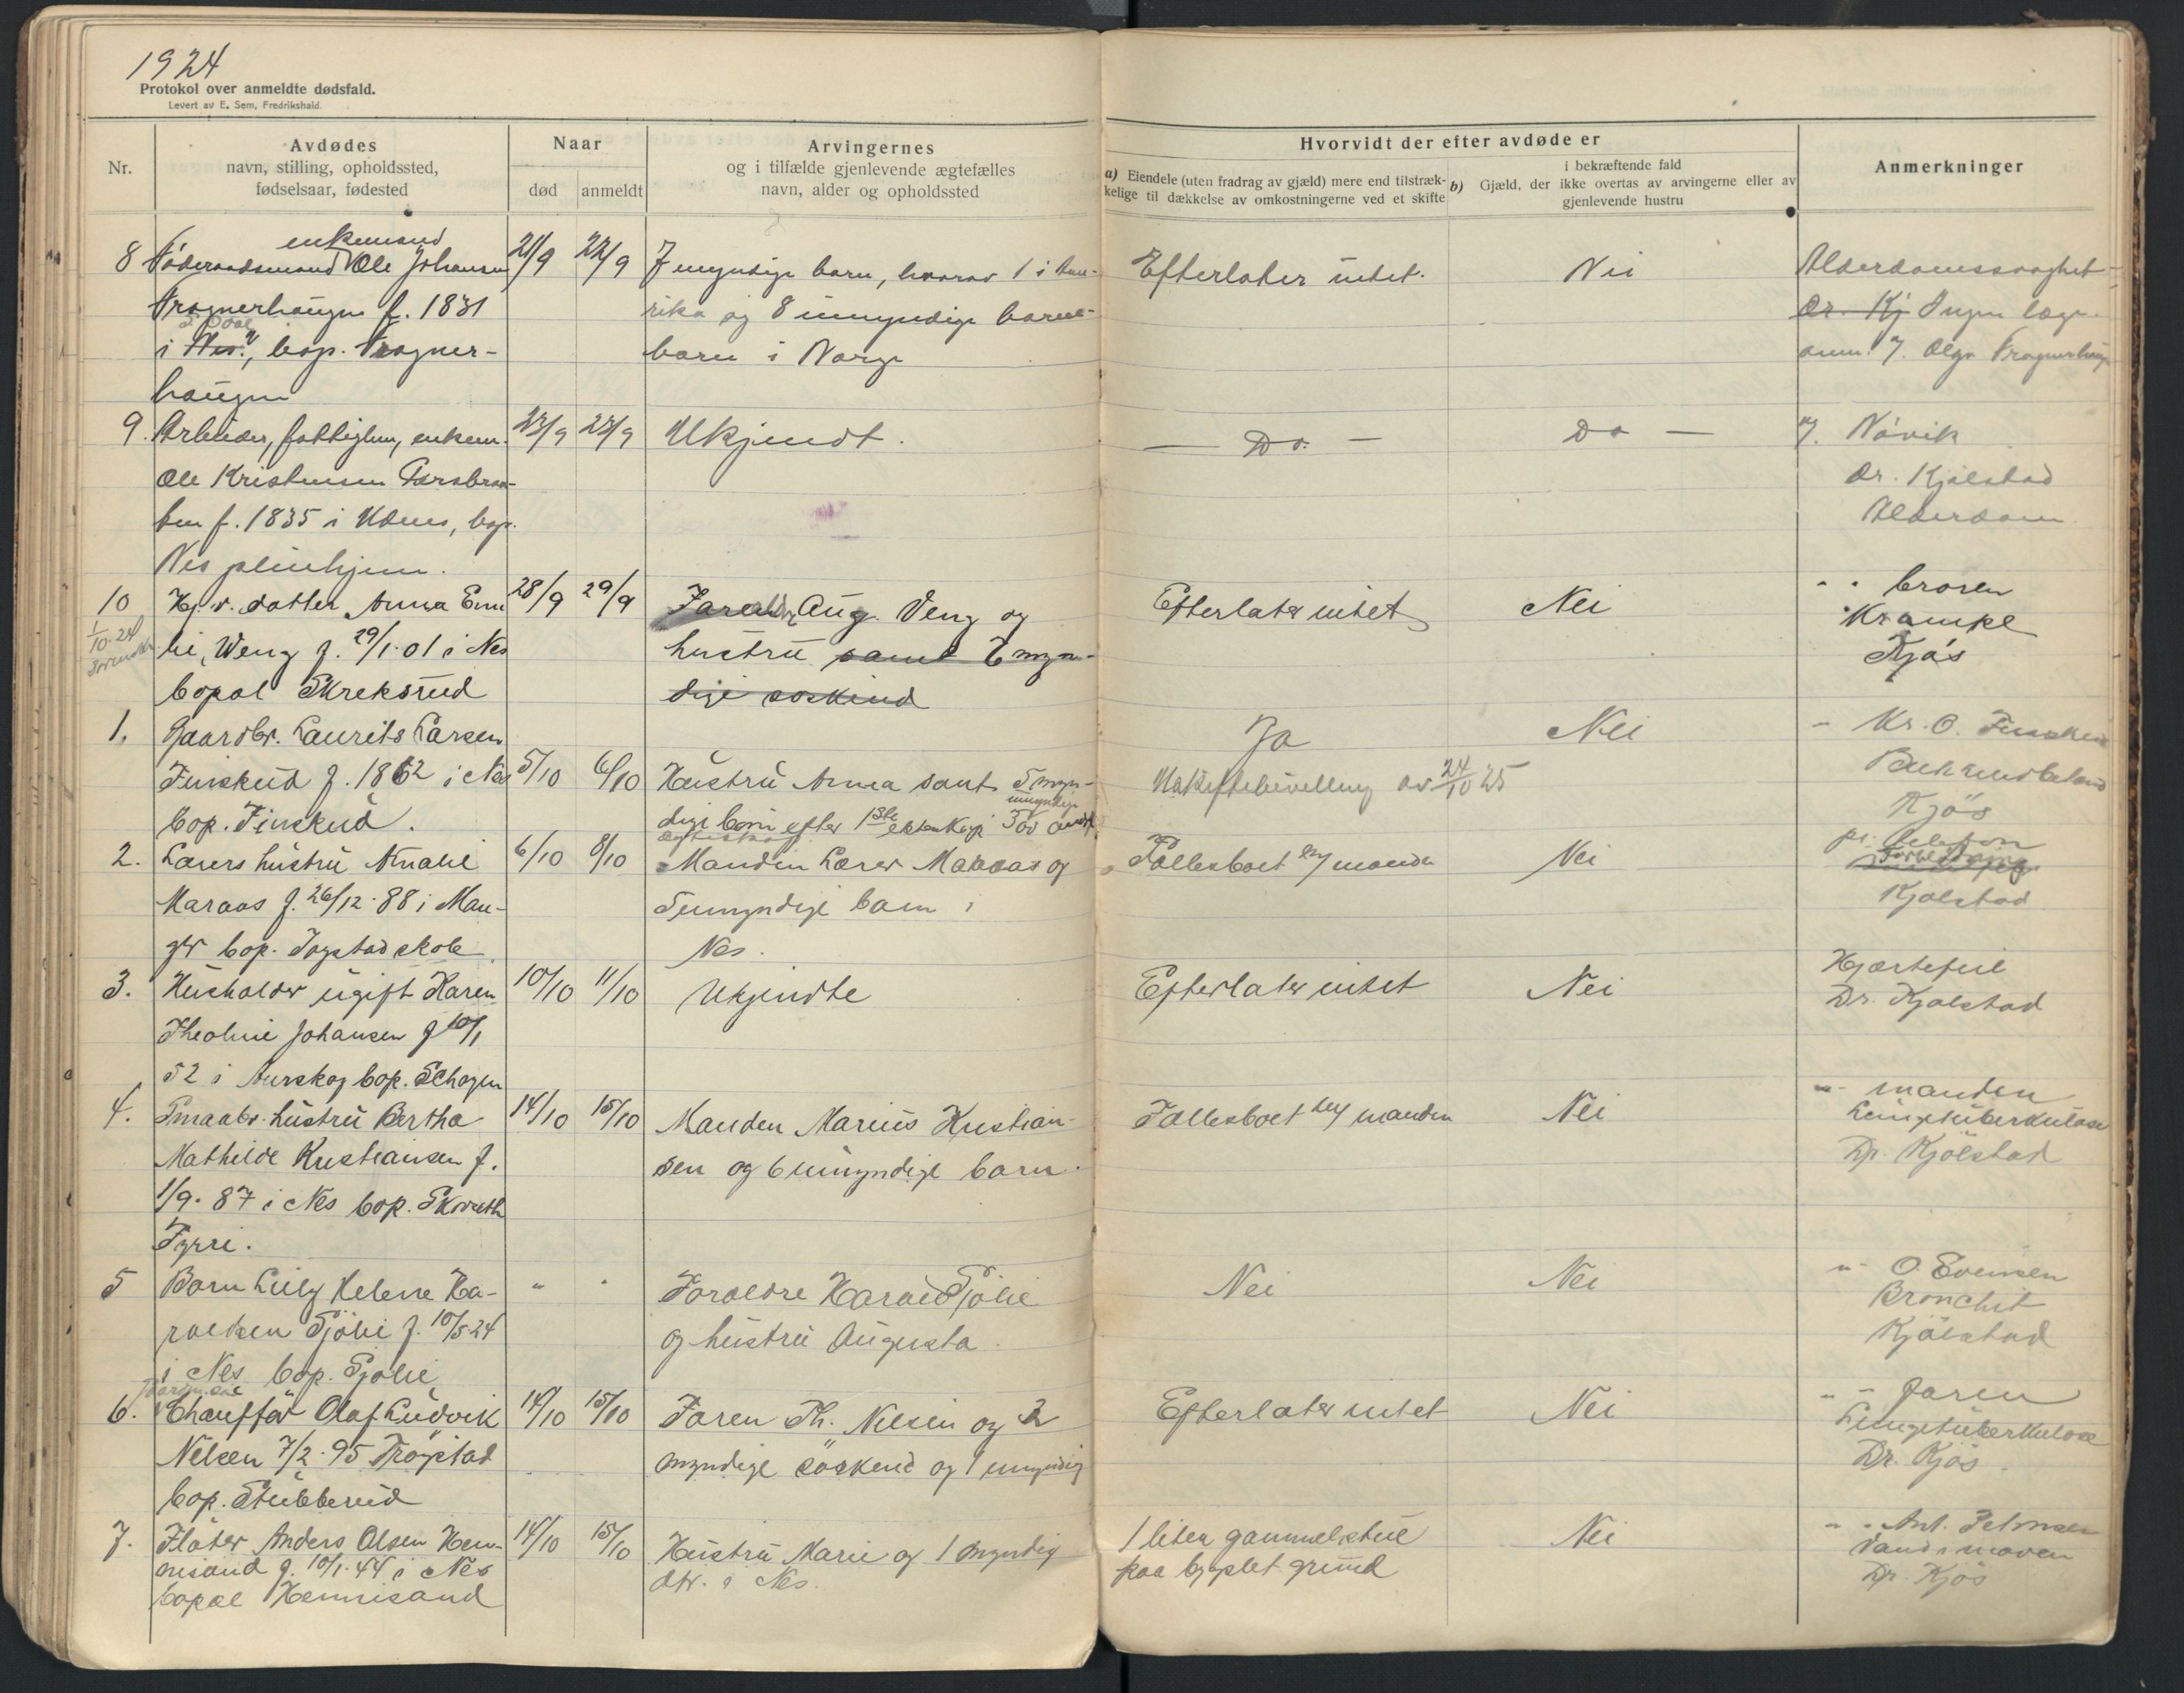 1924
Protokol over anmeldte dødsfald.
Levert av E. Sem, Fredrikshald.
Nr.
Avdødes
navn, stilling, opholdssted,
fødselsaar, fødested
Naar
død
anmeldt
Arvingernes
og i tilfælde gjenlevende ægtefælles
navn, alder og opholdssted
Hvorvidt der efter avdøde er
a) Eiendele (uten fradrag av gjæld) mere end tilstræk-
kelige til dækkelse av omkostningerne ved et skifte
i bekræftende fald
b) Gjæld, der ikke overtas av arvingerne eller av
gjenlevende hustru
Anmerkninger
enkemand
8 Föderaadsmand Ole Johansen 21/9 22/9 7 myndige barn, hvorav 1 i Ame- Efterlater intet. Nei Alderdomssvaghet
Frognerhaugen f. 1831 rika og 8 umyndige barne- Dr. Kj Ingen læge
i Nes, bop. Frogner- barn i Norge anm. Olga Frognerhaug
haugen
9. Arbeider, fattiglem, enkem. 23/9 24/9 Ukjendt. — Do. — Do — Nävik
Ole Kristensen Dr. Kjölstad
f. 1835 i Udnes, bop. Alderdom
Nes pleiehjem.
10 Hj.v. datter Anna Emi 28/9 29/9 Aug. Veng og Efterlater intet Nei
1/10.24
lie, Weng f. 29/1.01 i Nes hustru samt 6 myn- Krampe
bopæl Skreksrud dige søskend Kjøs
1. Gaardbr. Laurits Larsen Ja Nei Kr. O.
Finskud f. 1862 i Nes 5/10 6/10 Hustru Anna samt 5 myn- Uskiftebevilling av 24/10 25
umyndige
bop. Finskud. dige børn efter 1ste Kjös
2. Lærers hustru Amalie 6/10 8/10 Manden Lærer Maraas og Fællesboet v/ manden Nei pr. telefon
Maraas f. 26/12.88 i Man- 5 umyndige barn i Kjølstad
ger bop. skole Nes.
3. Husholder ugift Karen 10/10 11/10 Ukjendte Efterlater intet Nei Hjertefeil
Theoline Johansen f 10/1 Dr. Kjølstad
52 i Aurskog bop.
4. Smaabr. hustru Bertha 14/10 15/10 Manden Marius Kristian- Fællesboet manden Nei - manden
Mathilde Kristiansen f. sen og 6 umyndige barn. Lungetuberkulose
1/9.87 i Nes bop. Dr. Kjölstad
5 Barn Lilly Helene Ha- " " Foreldre Harald Sjölie Nei Nei " O. Evensen
raldsen Sjölie f. 10/5 24 og hustru Augusta. Bronchit
i Nes bop. Sjølie Kjölstad
6. Chauffør Olaf Ludvik 14/10 15/10 Faren Th. Nilsen og 2 Efterlater intet Nei " - faren
Nilsen 7/2.95 Trögstad myndige søskend og 1 umyndig Lungetuberkulose
bop. Stubberud Dr. Kjøs.
7. Fløter Anders Olsen Hen- 14/10 15/10 Hustru Marie og 1 myndig 1 liten gammel stue Nei " - Ant.
nisand f. 10/1.44 i Nes dtr. i Nes. paa bygslet grund Vand i maven
bopæl Hennisand Dr. Kjös